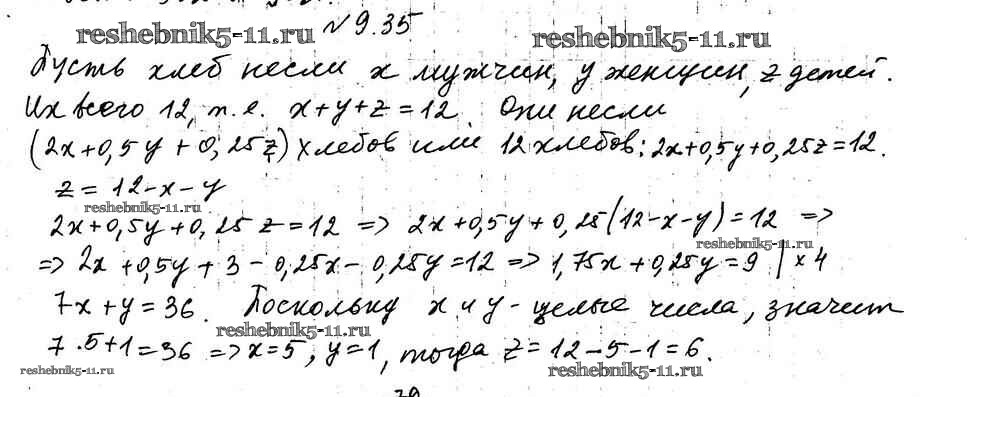 № 9.35
reshebnik5-11.ru reshebnik5-11.ru
Пусть хлеб несли x мужчин, y женщин, z детей.
Их всего 12, т.е. x+y+z=12. Они несли
(2x+0,5y+0,25z) хлебов или 12 хлебов: 2x+0,5y+0,25z=12.
z=12-x-y
reshebnik5-11.ru
2x+0,5y+0,25z=12 => 2x+0,5y+0,25(12-x-y)=12 =>
reshebnik5-11.ru
=> 2x+0,5y+3-0,25x-0,25y=12 => 1,75x+0,25y=9 | x4
7x+y=36. Поскольку x и y - целые числа, значит
reshebnik5-11.ru
7·5+1=36 => x=5, y=1, тогда z=12-5-1=6.
reshebnik5-11.ru reshebnik5-11.ru